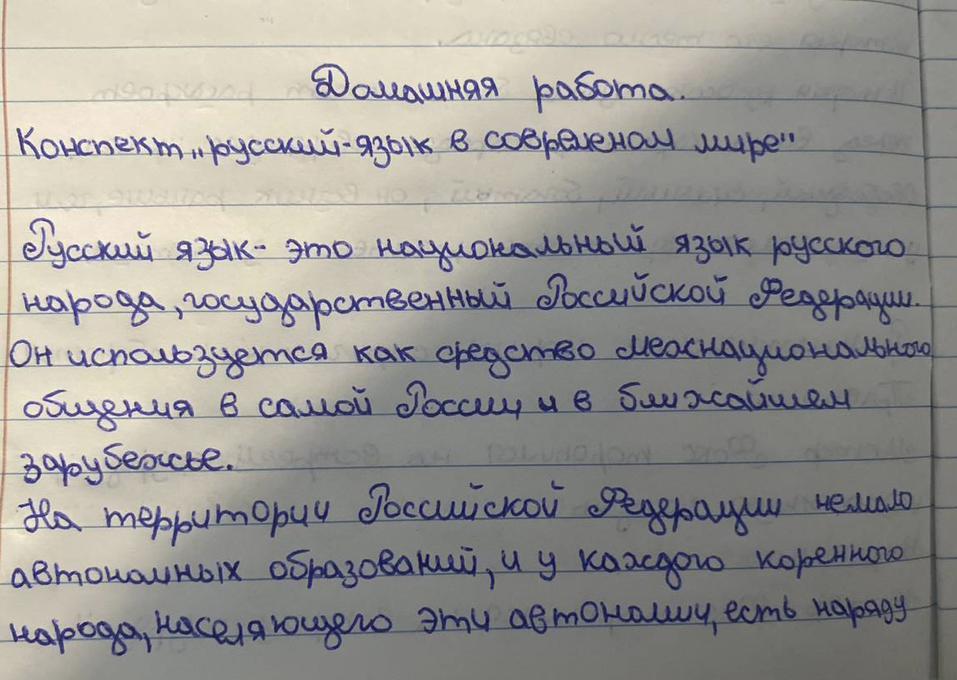 Домашняя работа.
Конспект „русский-язык в современом мире"
Русский язык- это национальный язык русского
народа, государственный Российской Федерации.
Он используется как средство межнационального
общения в самой России и в ближайшем
зарубежье.
На территории Российской Федерации немало
автономных образований, и у каждого коренного
народа, населяющего эти автономии, есть наряду